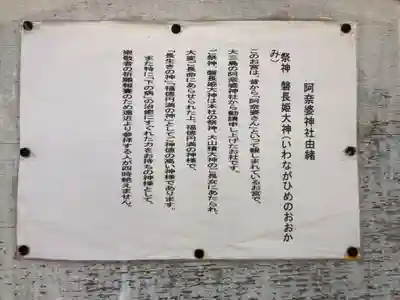 阿奈婆神社由緒
祭神　磐長姫大神(いわながひめのおおか
み)
このお宮は、昔から「阿奈婆さん」といって親しまれているお宮で、
大三島の阿奈婆神社から勧請申し上げたお社です。
ご祭神、磐長姫大神は本社の祭神、大山積大神のご長女にあたられ、
大変ご長命にあらせられた上、福徳円満の神様で、
「長生きの神」「福徳円満の神」としてご神徳の高い神様であります。
また特に「下の病」の治癒にすぐれた力をお持ちの神様として、
崇敬者の祈願報賽のため遠近より参拝する人が四時絶えません。